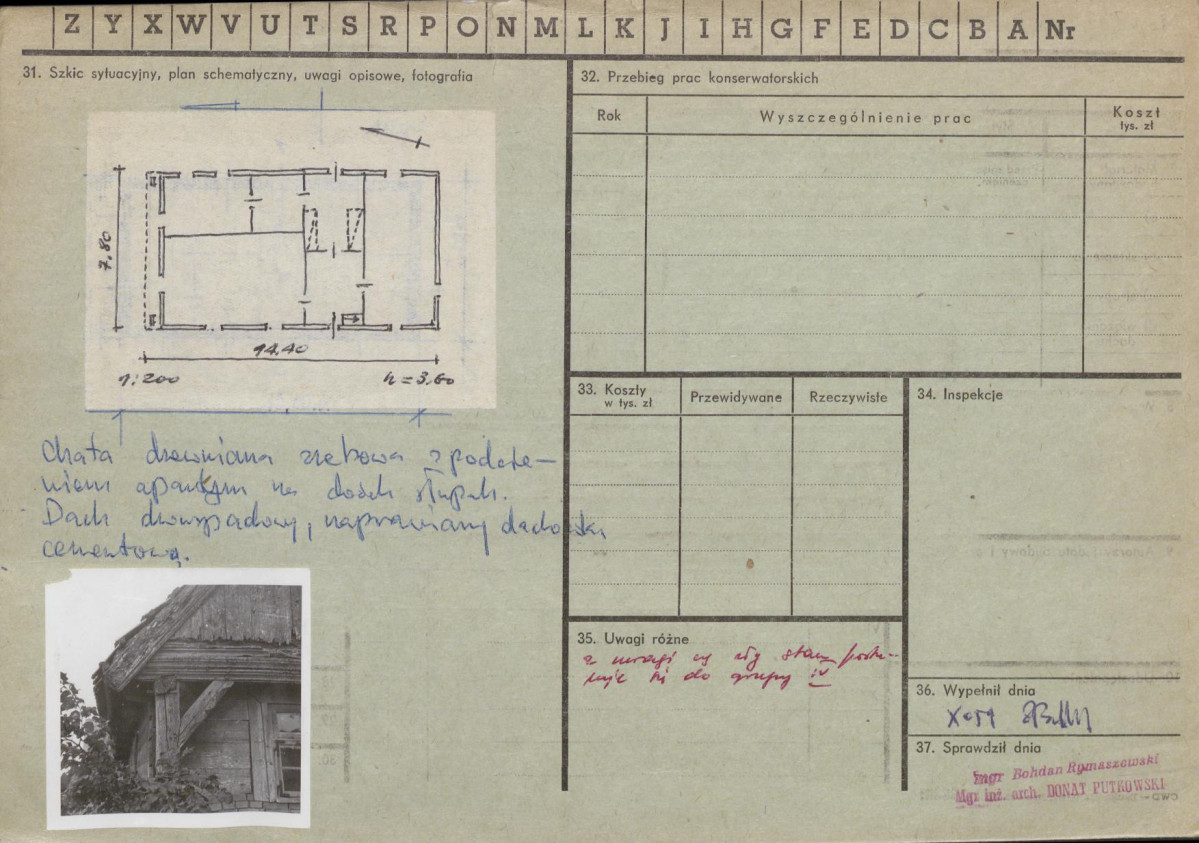 Z Y X W V U T S R P O N M L K J I H G F E D C B A Nr
31. Szkic sytuacyjny, plan schematyczny, uwagi opisowe, fotografia
7,80
14.40
1:200
h = 3,60
Chata drewniana zrębowa z podcie-
niem opartym na dwóch słupach.
Dach dwuspadowy, naprawiany dachówką
cementową.
32. Przebieg prac konserwatorskich
Rok
Wyszczególnienie prac
Koszt
tys. zł
33. Koszty
w tys. zł
Przewidywane
Rzeczywiste
34. Inspekcje
35. Uwagi różne
z uwagi na zły stan
się do grupy IV
36. Wypełnił dnia
X 59
37. Sprawdził dnia
mgr Bohdan Rymaszewski
Mgr inż. arch. DONAT PUTKOWSKI